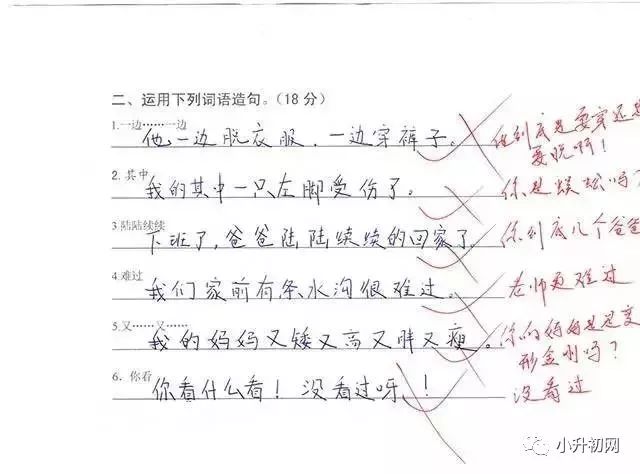 二、运用下列词语造句。（18分）
1.一边……一边
他一边脱衣服，一边穿裤子。
他到底是要穿还是
要脱啊！
2. 其中
我的其中一只左脚受伤了。
你是蜈蚣吗？
3.陆陆续续
下班了，爸爸陆陆续续的回家了。
你到底几个爸爸
4.难过
我们家前有条水沟很难过。
老师更难过
5.又……又……
我的妈妈又矮又高又胖又瘦。
你的妈妈是变
形金刚吗？
6. 你看
你看什么看！没看过呀！
没看过
小升初网